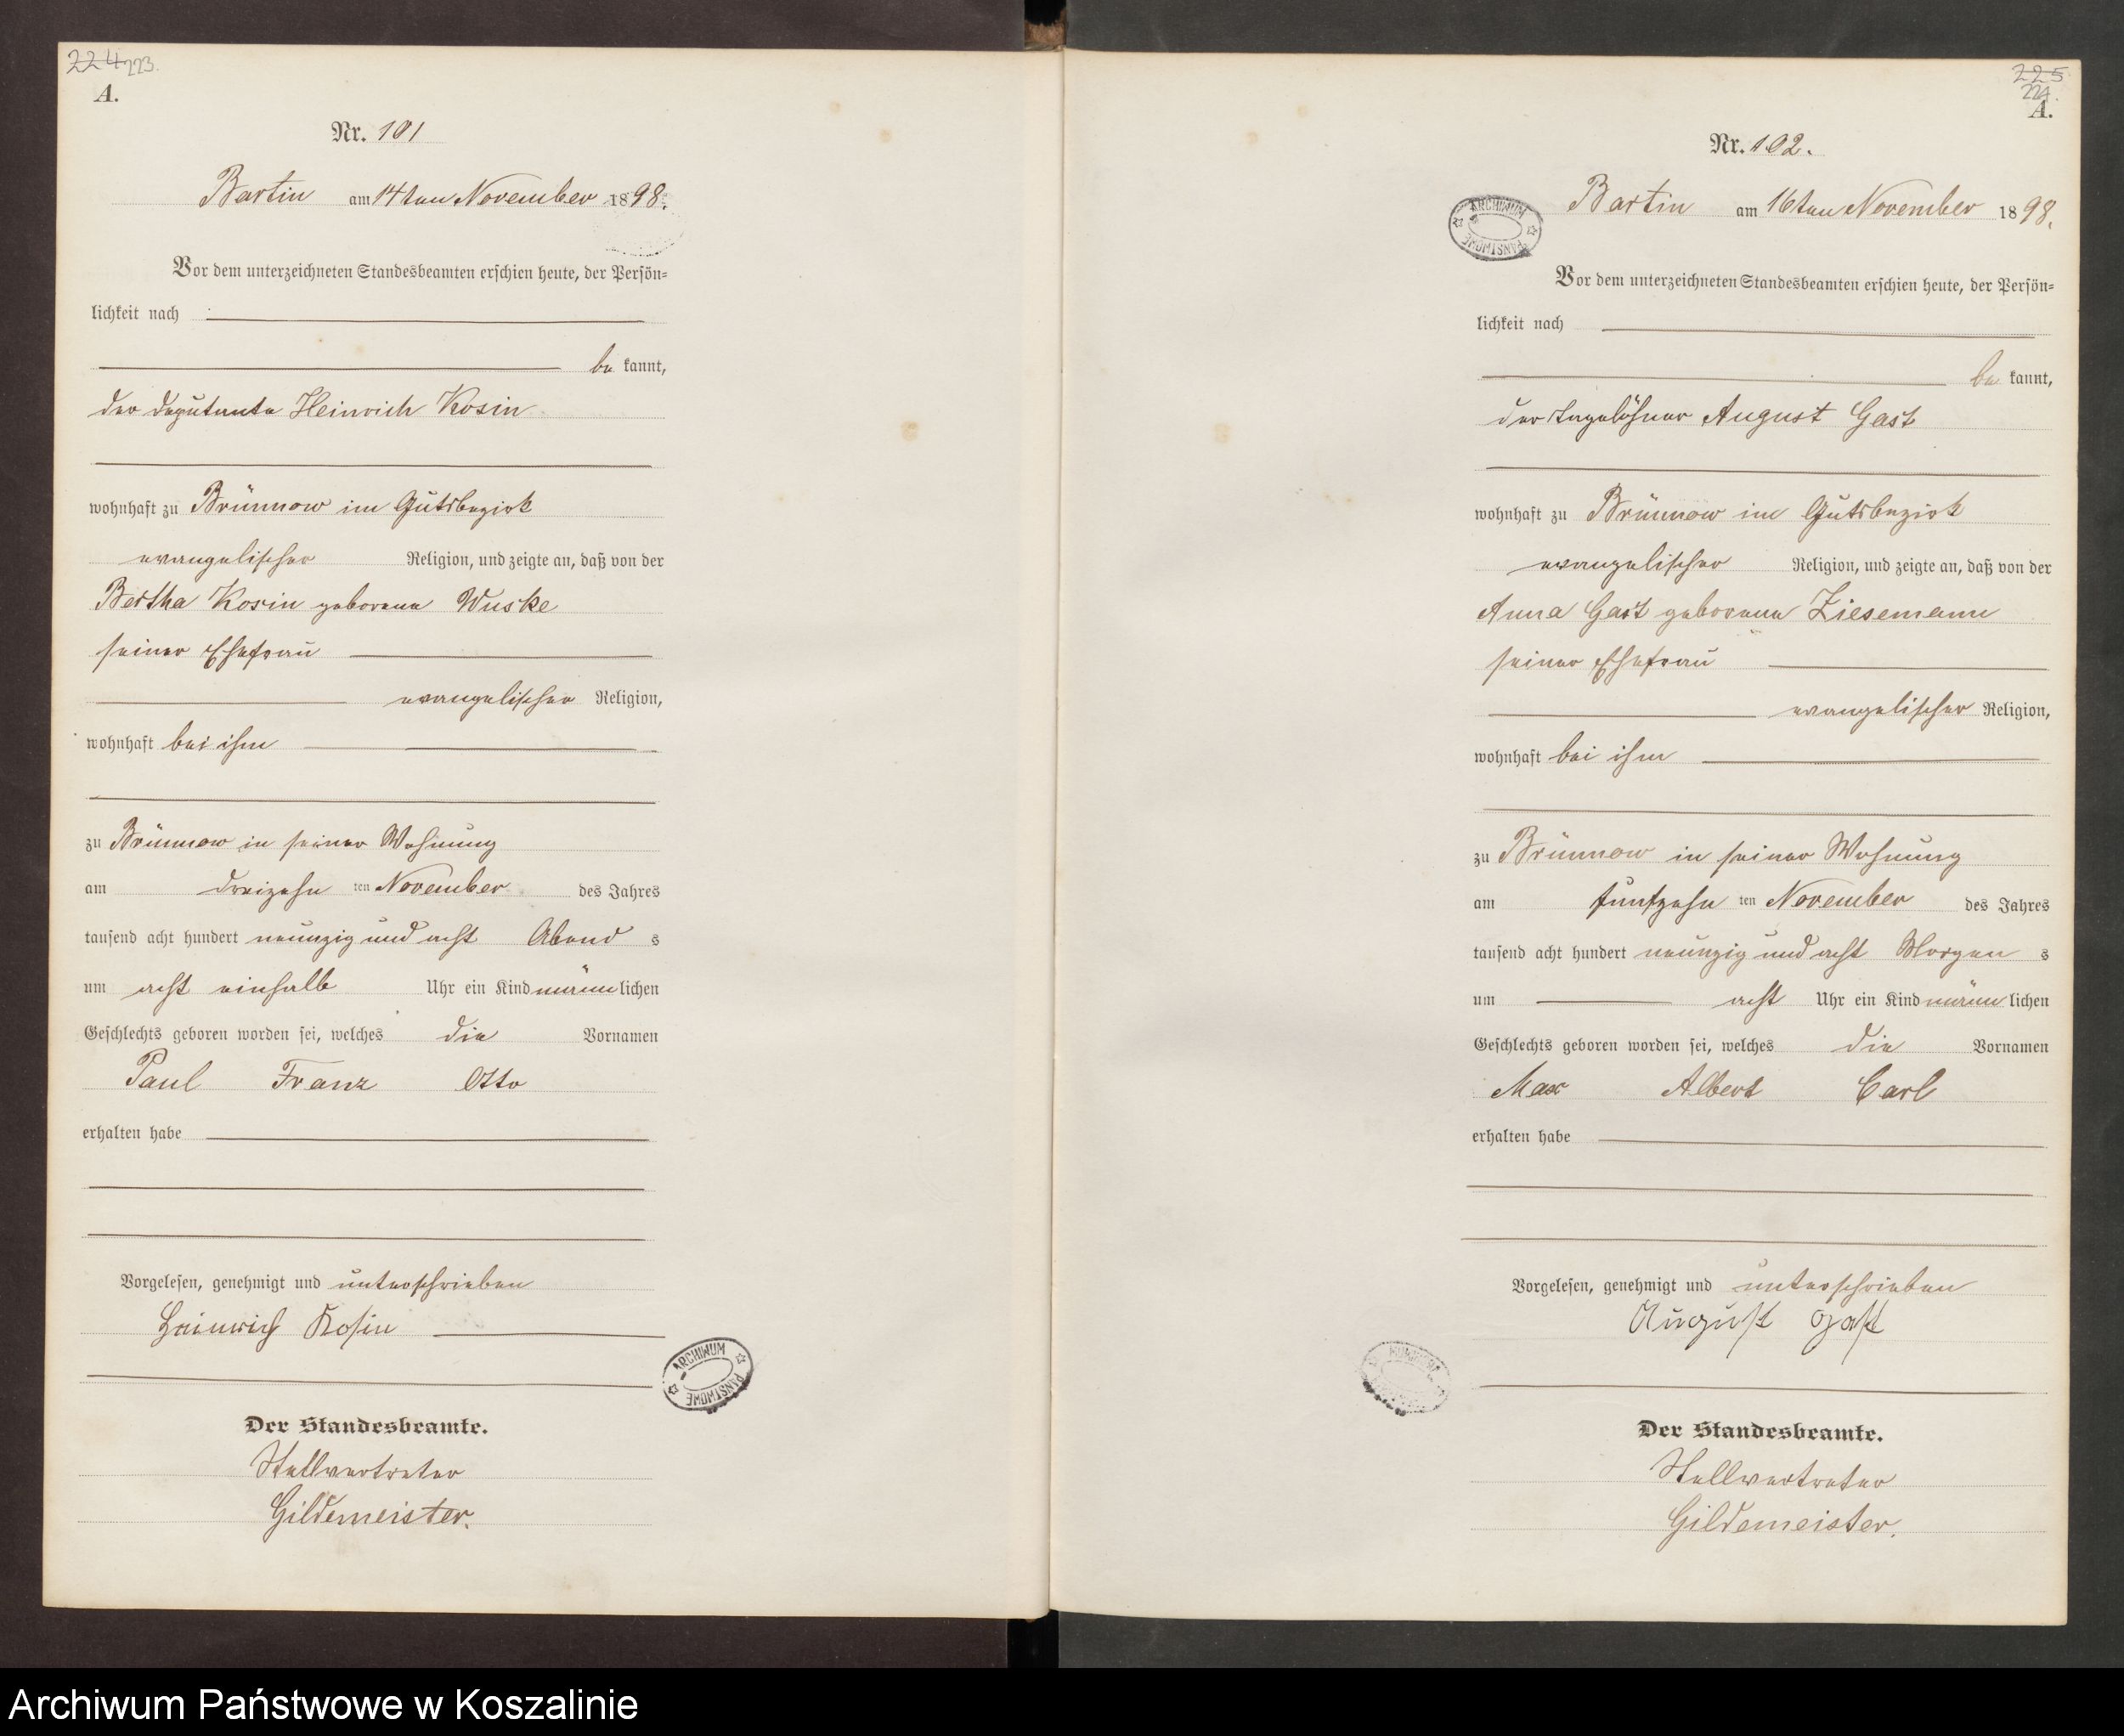 224 223.
A.
Nr. 101
Bartin am 14ten November 1898.
Vor dem unterzeichneten Standesbeamten erschien heute, der Persön-
lichkeit nach
be kannt,
der Deputante Heinrich Kosin
wohnhaft zu Brünnow im Gutsbezirk
evangelischer Religion, und zeigte an, daß von der
Bertha Kosin geborene Wuske
seiner Ehefrau
evangelischer Religion,
wohnhaft bei ihm
zu Brünnow in seiner Wohnung
am dreizehn ten November des Jahres
tausend acht hundert neunzig und acht Abend s
um acht einhalb Uhr ein Kind männ lichen
Geschlechts geboren worden sei, welches die Vornamen
Paul Franz Otto
erhalten habe
Vorgelesen, genehmigt und unterschrieben
Heinrich Kosin
ARCHIWUM PAŃSTWOWE
Der Standesbeamte.
Stellvertreter
Gildemeister.
225
224.
A.
Nr. 102.
ARCHIWUM PAŃSTWOWE
Bartin am 16ten November 1898.
Vor dem unterzeichneten Standesbeamten erschien heute, der Persön-
lichkeit nach
be kannt,
der Tagelöhner August Gast
wohnhaft zu Brünnow im Gutsbezirk
evangelischer Religion, und zeigte an, daß von der
Anna Gast geborene Ziesemann
seiner Ehefrau
evangelischer Religion,
wohnhaft bei ihm
zu Brünnow in seiner Wohnung
am fünfzehn ten November des Jahres
tausend acht hundert neunzig und acht Morgen s
um acht Uhr ein Kind männ lichen
Geschlechts geboren worden sei, welches die Vornamen
Max Albert Carl
erhalten habe
Vorgelesen, genehmigt und unterschrieben
August Gast
Der Standesbeamte.
Stellvertreter
Gildemeister.
Archiwum Państwowe w Koszalinie